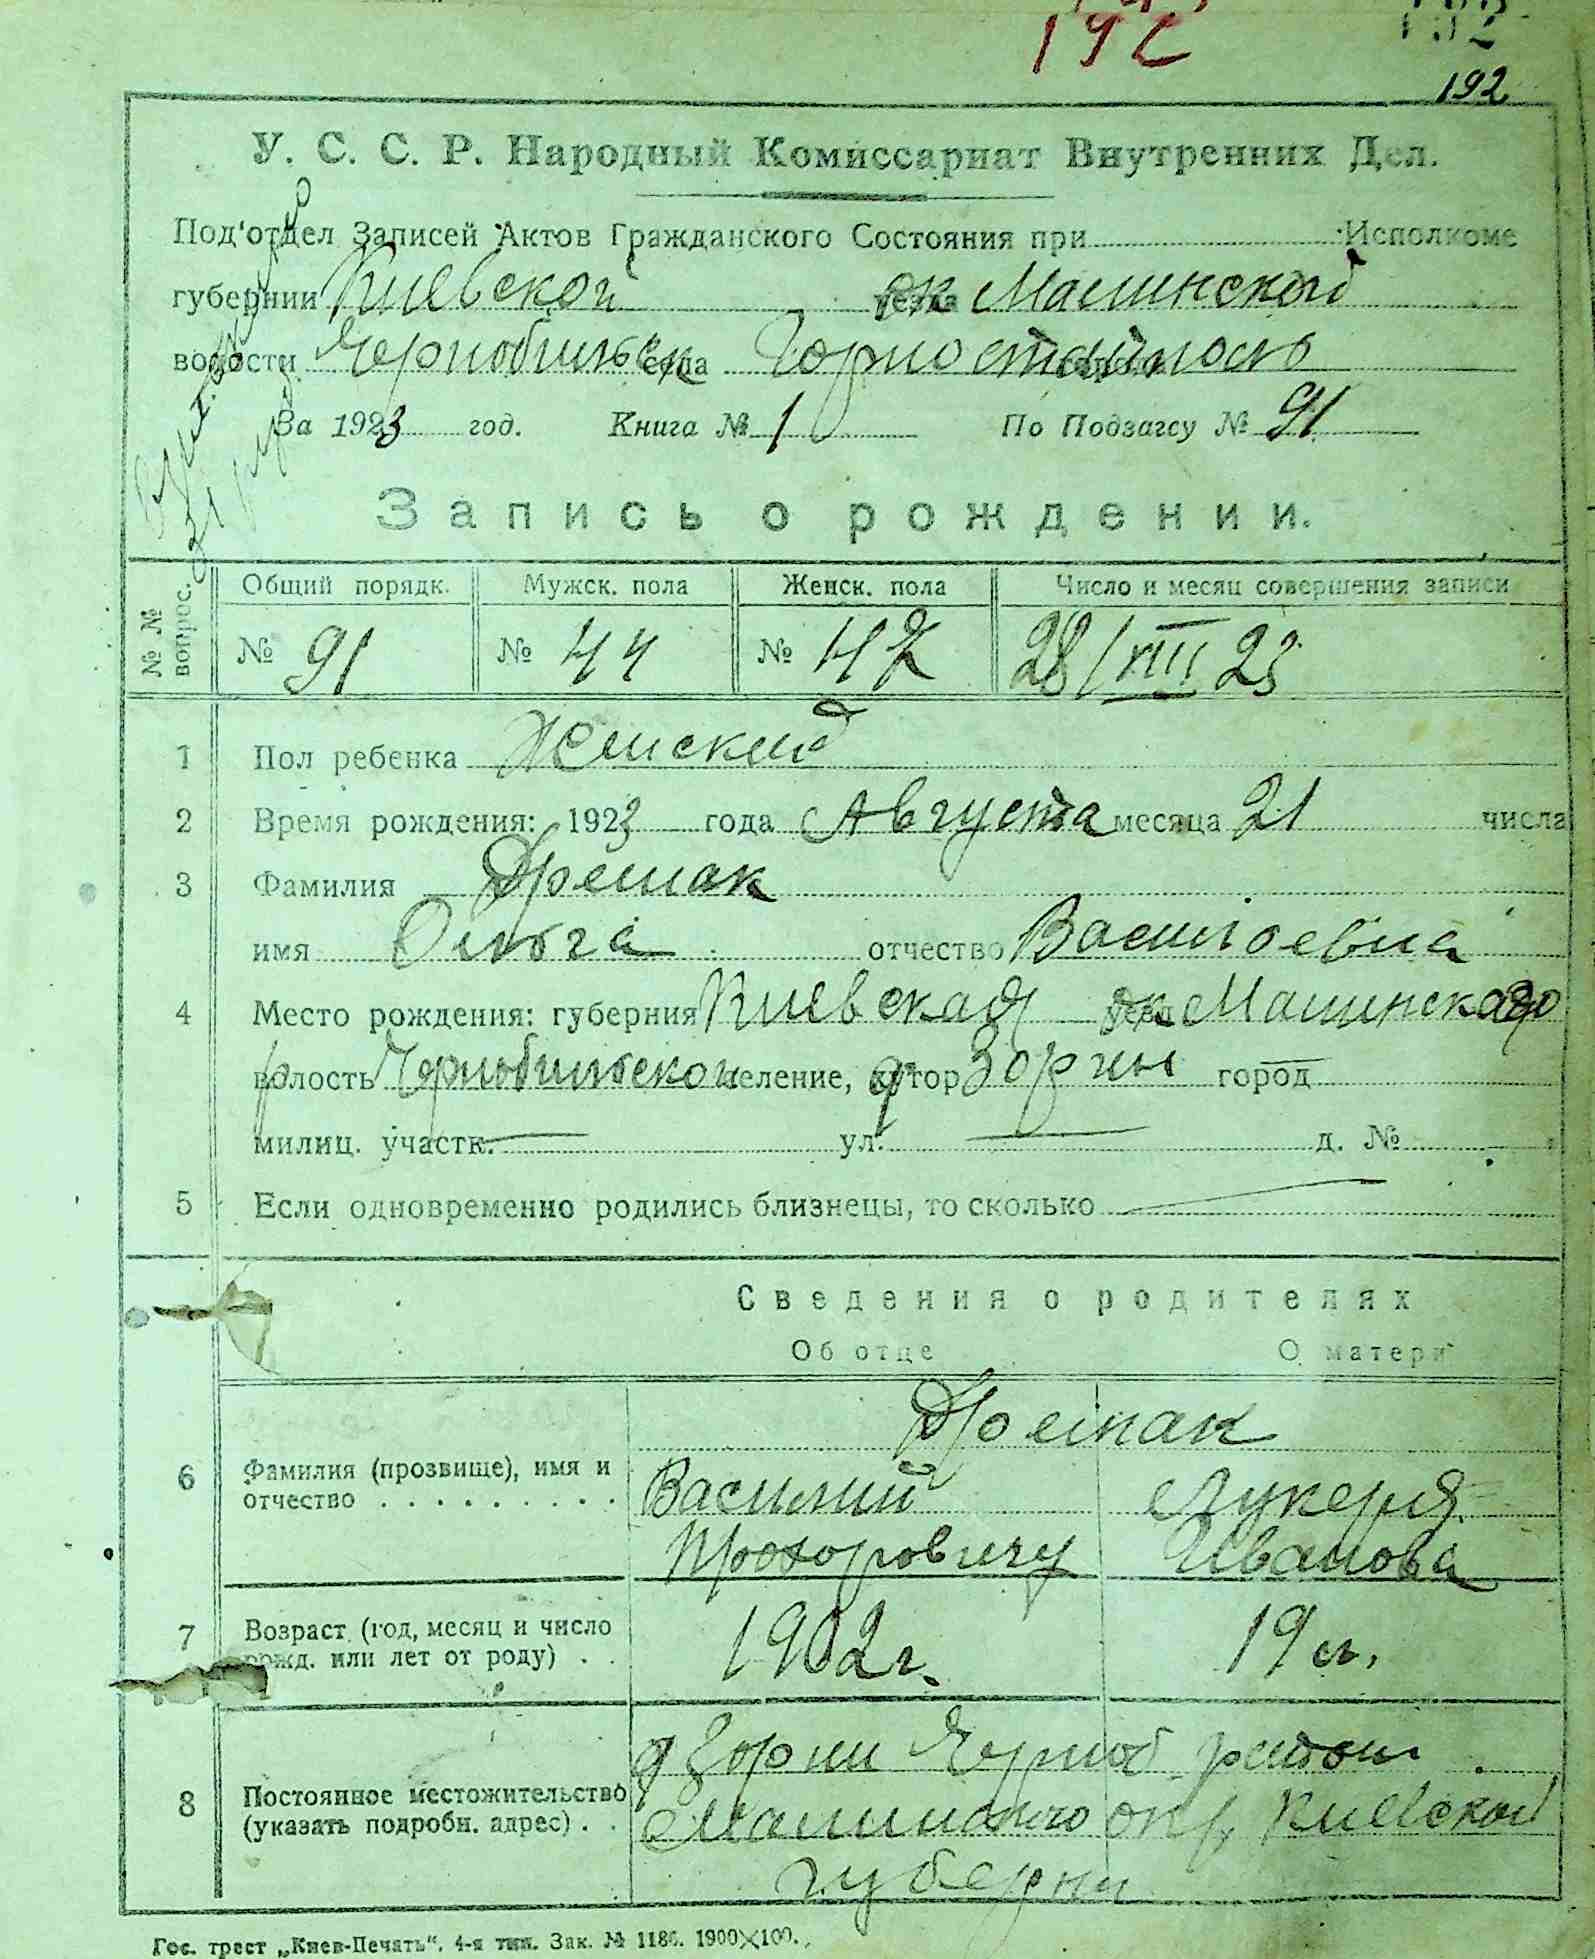 192
192
У. С. С. Р. Народный Комиссариат Внутренних Дел.
Под'отдел Записей Актов Гражданского Состояния при Исполкоме
губернии Киевской уезда ок Малинской
волости Чернобильск села Горностайполь
За 1923 год. Книга № 1 По Подзагсу № 91
Запись о рождении.
№№ вопрос. Общий порядк. Мужск. пола Женск. пола Число и месяц совершения записи
№ 91 № 44 № 47 28/VIII 23
1 Пол ребенка Женский
2 Время рождения: 1923 года Августа месяца 21 числа
3 Фамилия
имя Ольга отчество Васильевна
4 Место рождения: губерния Киевская уезд ок Малинского
волость Чернобильской селение, хутор Зорин город
милиц. участк. ул. д. №
5 Если одновременно родились близнецы, то сколько
Сведения о родителях
Об отце О матери
6 Фамилия (прозвище), имя и Василий Лукерия
отчество Прохоровичу Иванова
7 Возраст (год, месяц и число 1902 г. 19 л.
рожд. или лет от роду)
д Зорин Черноб район
8 Постоянное местожительство Малинского окр, Киевской
(указать подробн. адрес) губерни
Гос. трест „Киев-Печать“. 4-я тип. Зак. № 1186. 1900×100.